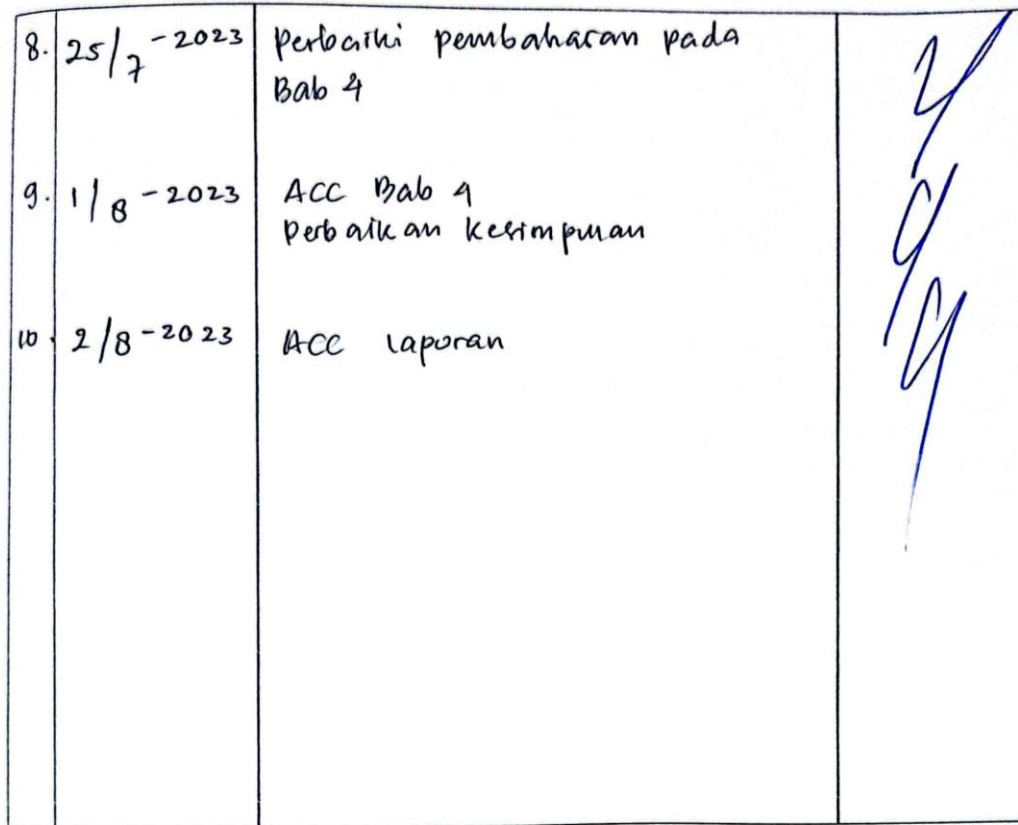 8. 25/7-2023 Perbaiki pembahasan pada
Bab 4
9. 1/8-2023 ACC Bab 4
Perbaikan kesimpulan
10. 2/8-2023 ACC laporan